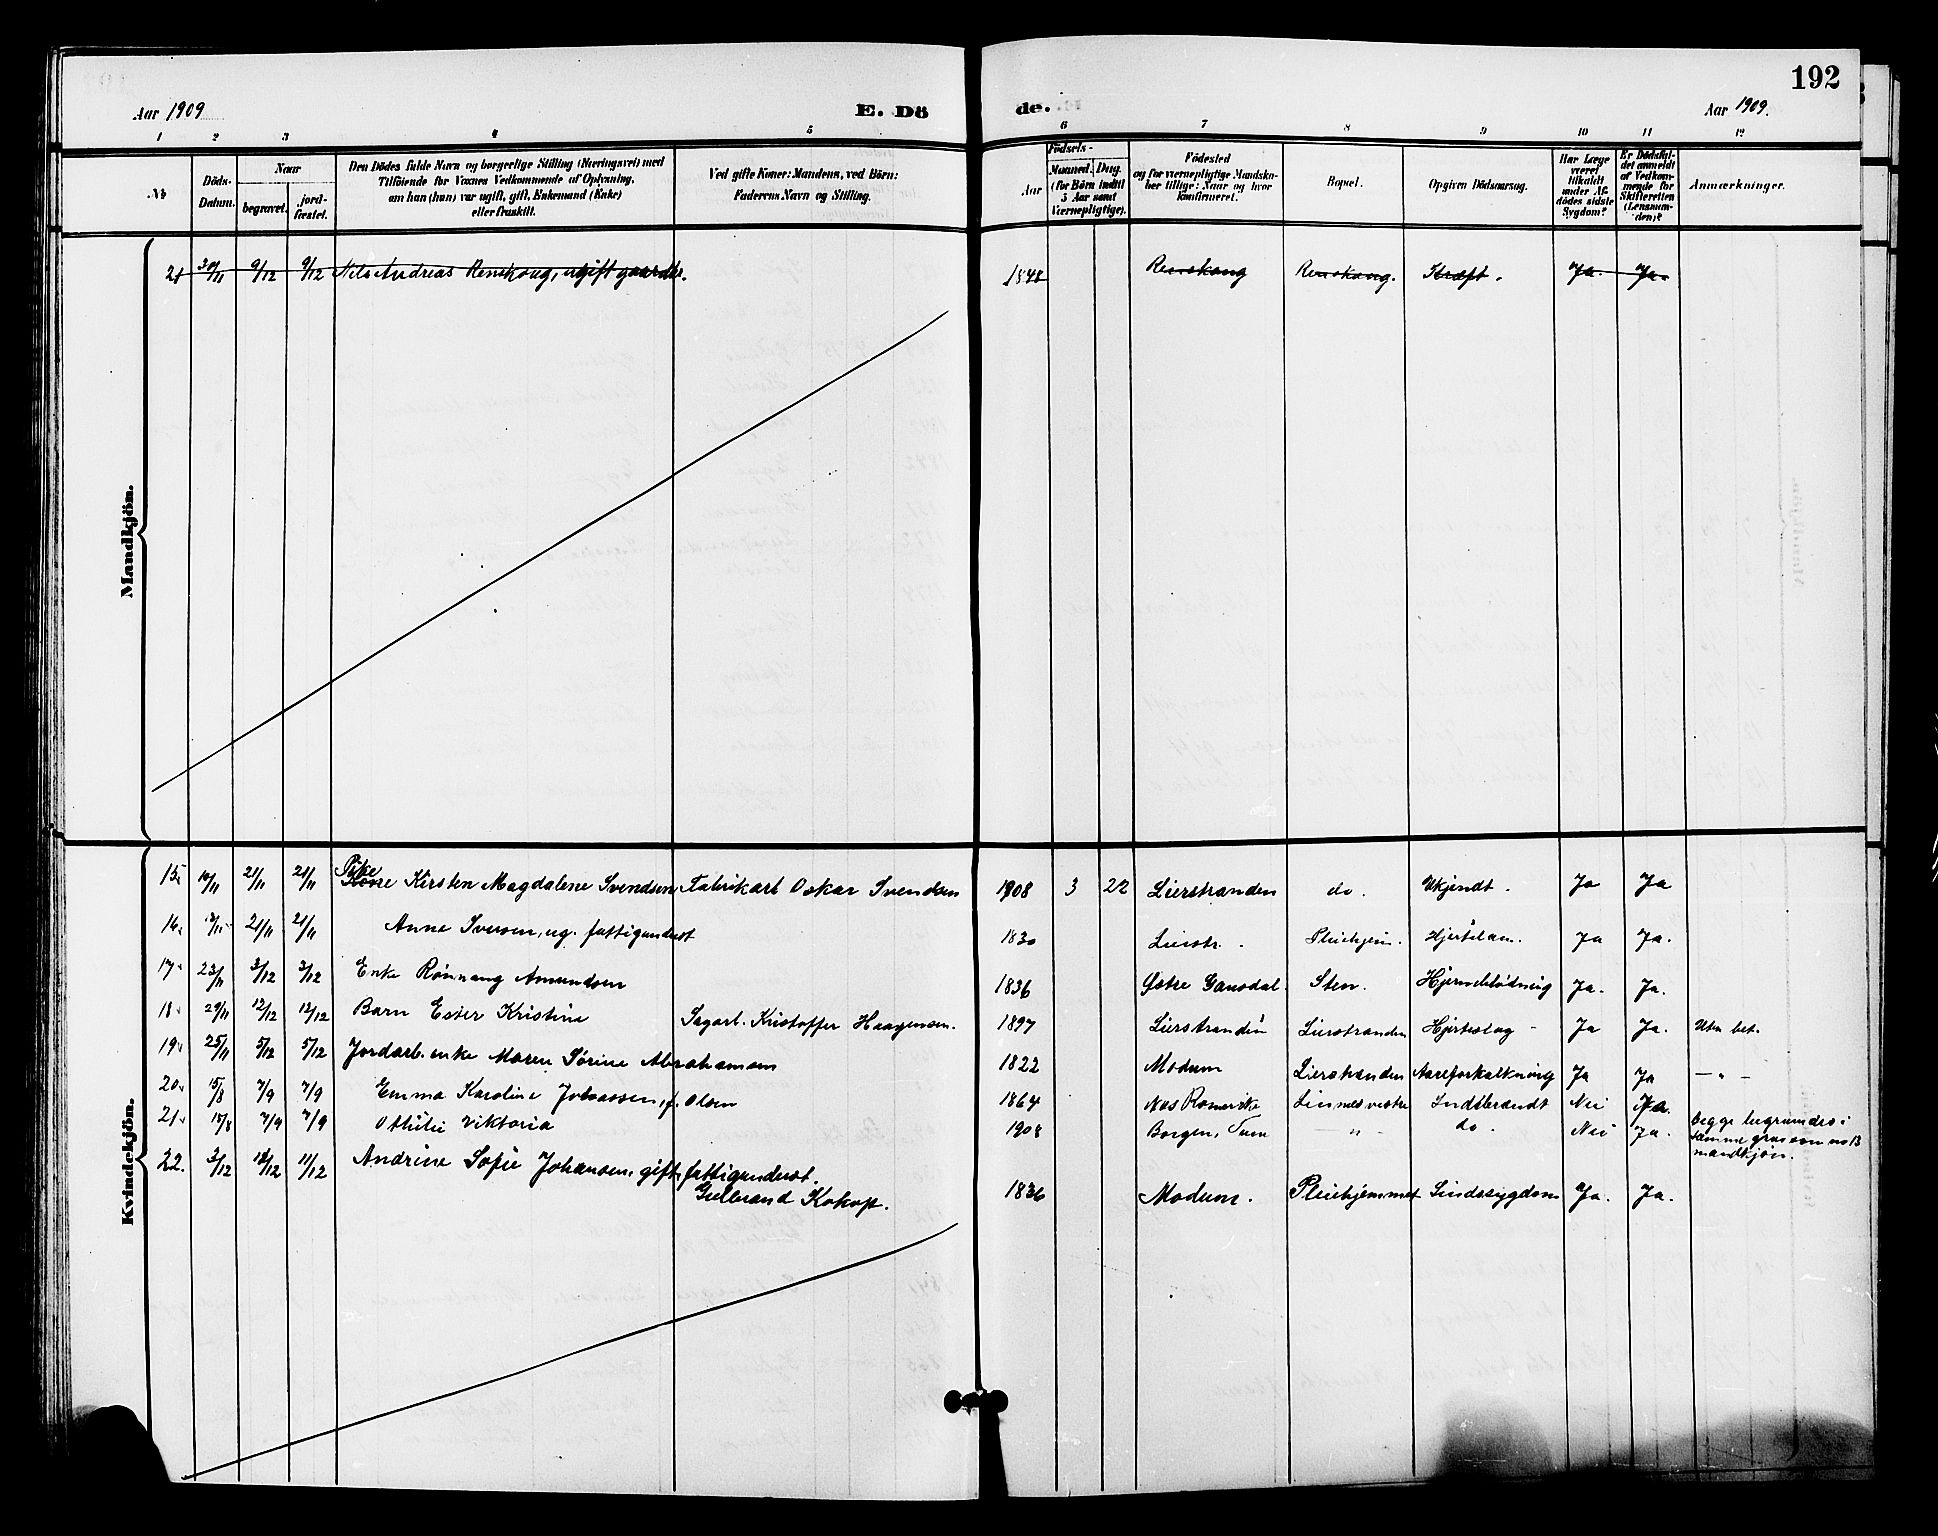 192
Aar 1909
E. Dö
de.
Aar 1909.
1 2 3 4 5 6 7 8 9 10 11 12
№
Döds-Datum.
Naar
begravet.
jord-fæstet.
Den Dödes fulde Navn og borgerlige Stilling (Næringsvei) med
Tilföiende for Voxnes Vedkommende af Oplysning,
om han (hun) var ugift, gift, Enkemand (Enke)
eller fraskilt.
Ved gifte Koner: Mandens, ved Börn:
Faderens Navn og Stilling.
Födsels-
Aar
Maaned. Dag.
(for Börn indtil
5 Aar samt
Værnepligtige).
Födested
og for værnepligtige Mandska-
ber tillige: Naar og hvor
konfirmeret.
Bopæl.
Opgiven Dödsaarsag.
Har Læge
været
tilkaldt
under Af-
dödes sidste
Sygdom?
Er Dödsfal-
det anmeldt
af Vedkom-
mende for
Skifteretten
(Lensman-
den)?
Anmærkninger.
Mandkjön.
21 30/11 9/12 9/12 Nils Andreas Renskoug, ugift gaardbr. 1848 Renskoug Renskoug. Kræft. Ja. Ja.
Kvindekjön.
15. 10/11 21/11 21/11 Pike Kirsten Magdalene Svendsen Fabrikarb Oskar Svendsen 1908 3 22 Lierstranden do. Ukjendt. Ja Ja
16. 21/11 21/11 Anne Iversen, ug. fattigunderst 1830 Lierstr. Pleiehjem. Hjertelam. Ja Ja.
17. 23/11 3/12 3/12 Enke Rønnaug Amundsen 1836 Østre Gausdal. Sten. Hjerneblødning Ja. Ja.
18. 29/11 12/12 12/12 Barn Ester Kristine Sagarb. Kristoffer Haagensen. 1897 Lierstranden Lierstranden Hjerteslag - Ja Ja. Uten bet.
19. 25/11 5/12 5/12 Jordarb. enke Maren Sørine Abrahamsen 1822 Modum Lierstranden Aareforkalkning Ja Ja - " -
20. 15/8 7/9 7/9 Emma Karoline Johnassen, f. Olsen 1864 Nes Romerike Linnes vestre Indebrændt Nei Ja.
21. 15/8 7/9 7/9 Othilie Viktoria 1908 Borgen, - " - do. Nei Ja. begge begravedes i
samme grav som no 13
mandkjøn.
22. 3/12 11/12 11/12 Andrine Sofie Johansen, gift, fattigunderst.
Gulbrand Kokop. 1836 Modum. Pleiehjemmet Sindssygdom Ja. Ja.